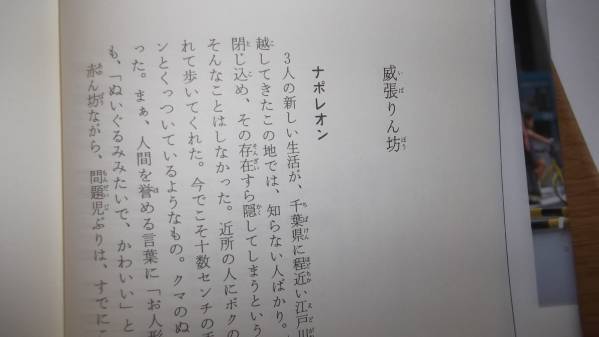 威張りん坊
ナポレオン
3人の新しい生活が、千葉県に程近い江戸川
越してきたこの地では、知らない人ばかり。
閉じ込め、その存在すら隠してしまうという
そんなことはしなかった。近所の人にボクの
れて歩いてくれた。今でこそ十数センチの
ンとくっついているようなもの。クマのぬ
った。まぁ、人間を誉める言葉に「お人形
も、「ぬいぐるみみたいで、かわいい」と
赤ん坊ながら、問題児ぶりは、すでに